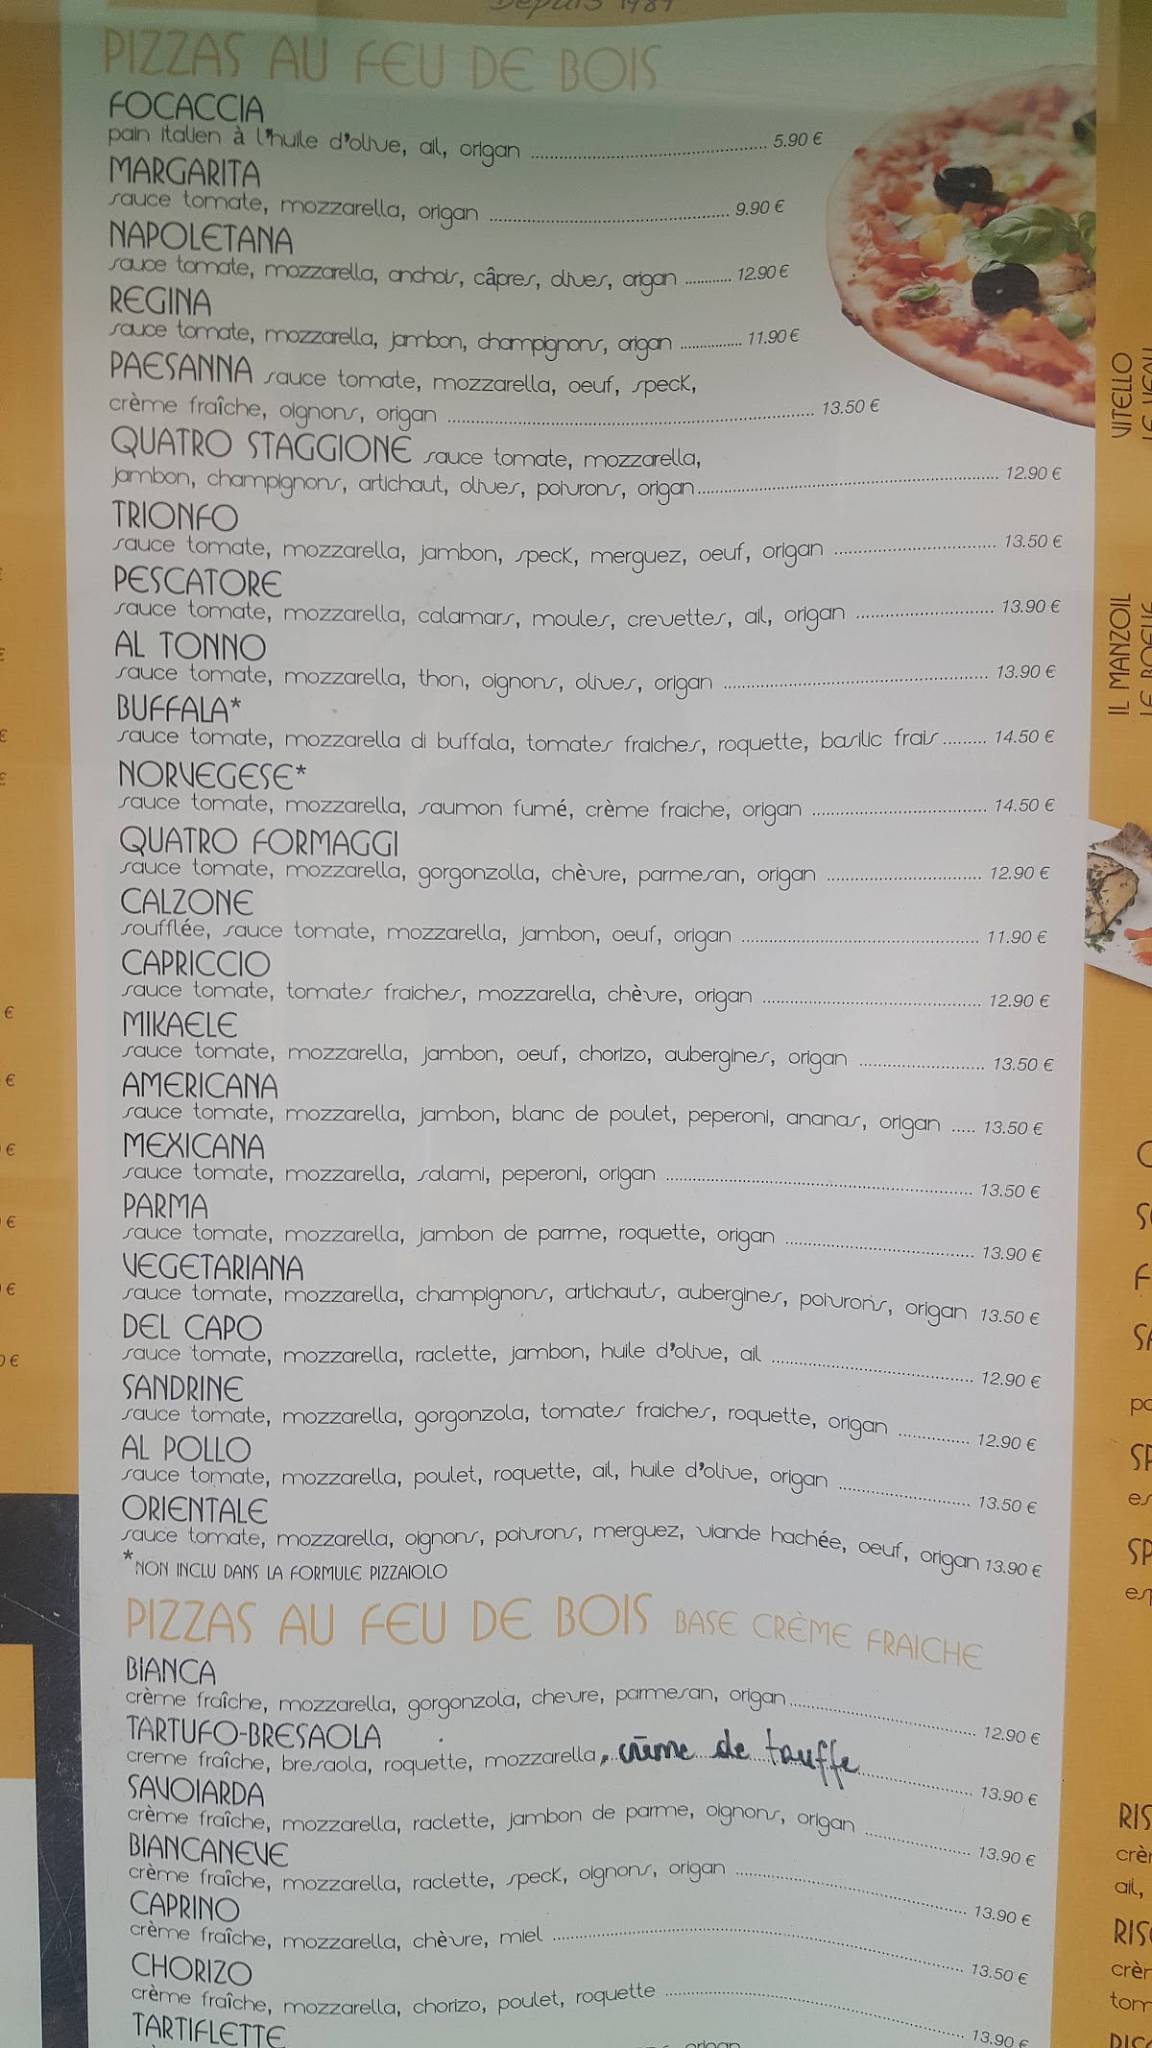 Depuis 1989
PIZZAS AU FEU DE BOIS
FOCACCIA
pain italien à l'huile d'olive, ail, origan ... 5.90 €
MARGARITA
sauce tomate, mozzarella, origan ... 9.90 €
NAPOLETANA
sauce tomate, mozzarella, anchois, câpres, olives, origan ... 12.90 €
REGINA
sauce tomate, mozzarella, jambon, champignons, origan ... 11.90 €
PAESANNA sauce tomate, mozzarella, oeuf, speck,
crème fraîche, oignons, origan ... 13.50 €
QUATRO STAGGIONE sauce tomate, mozzarella,
jambon, champignons, artichaut, olives, poivrons, origan... 12.90 €
TRIONFO
sauce tomate, mozzarella, jambon, speck, merguez, oeuf, origan ... 13.50 €
PESCATORE
sauce tomate, mozzarella, calamars, moules, crevettes, ail, origan ... 13.90 €
AL TONNO
sauce tomate, mozzarella, thon, oignons, olives, origan ... 13.90 €
BUFFALA*
sauce tomate, mozzarella di buffala, tomates fraiches, roquette, basilic frais ... 14.50 €
NORVEGESE*
sauce tomate, mozzarella, saumon fumé, crème fraiche, origan ... 14.50 €
QUATRO FORMAGGI
sauce tomate, mozzarella, gorgonzolla, chèvre, parmesan, origan ... 12.90 €
CALZONE
soufflée, sauce tomate, mozzarella, jambon, oeuf, origan ... 11.90 €
CAPRICCIO
sauce tomate, tomates fraiches, mozzarella, chèvre, origan ... 12.90 €
MIKAELE
sauce tomate, mozzarella, jambon, oeuf, chorizo, aubergines, origan ... 13.50 €
AMERICANA
sauce tomate, mozzarella, jambon, blanc de poulet, peperoni, ananas, origan ..... 13.50 €
MEXICANA
sauce tomate, mozzarella, salami, peperoni, origan ... 13.50 €
PARMA
sauce tomate, mozzarella, jambon de parme, roquette, origan ... 13.90 €
VEGETARIANA
sauce tomate, mozzarella, champignons, artichauts, aubergines, poivrons, origan 13.50 €
DEL CAPO
sauce tomate, mozzarella, raclette, jambon, huile d'olive, ail ... 12.90 €
SANDRINE
sauce tomate, mozzarella, gorgonzola, tomates fraiches, roquette, origan ... 12.90 €
AL POLLO
sauce tomate, mozzarella, poulet, roquette, ail, huile d'olive, origan ... 13.50 €
ORIENTALE
sauce tomate, mozzarella, oignons, poivrons, merguez, viande hachée, oeuf, origan 13.90 €
*NON INCLU DANS LA FORMULE PIZZAIOLO
PIZZAS AU FEU DE BOIS BASE CRÈME FRAICHE
BIANCA
crème fraîche, mozzarella, gorgonzola, chevre, parmesan, origan... 12.90 €
TARTUFO-BRESAOLA
creme fraîche, bresaola, roquette, mozzarella, crème de tauffe ... 13.90 €
SAVOIARDA
crème fraîche, mozzarella, raclette, jambon de parme, oignons, origan ... 13.90 €
BIANCANEVE
crème fraîche, mozzarella, raclette, speck, oignons, origan ... 13.90 €
CAPRINO
crème fraîche, mozzarella, chèvre, miel ... 13.50 €
CHORIZO
crème fraîche, mozzarella, chorizo, poulet, roquette ... 13.90 €
TARTIFLETTE
origan
VITELLO
IL MANZOIL
ail,